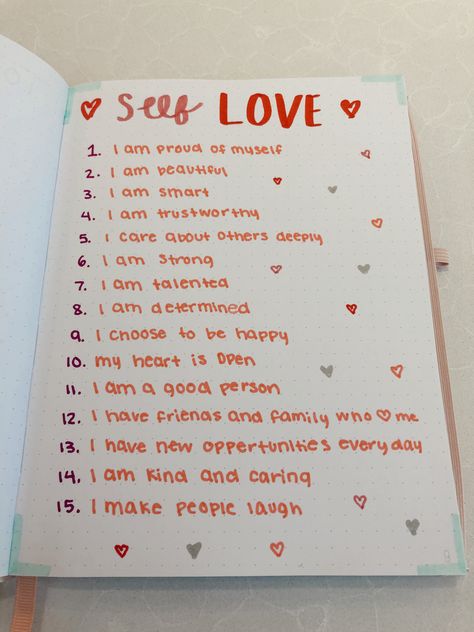 ♥ Self LOVE ♥
1. I am proud of myself
2. I am beautiful
3. I am smart
4. I am trustworthy
5. I care about others deeply
6. I am strong
7. I am talented
8. I am determined
9. I choose to be happy
10. my heart is open
11. I am a good person
12. I have friends and family who ♥ me
13. I have new oppertunities everyday
14. I am kind and caring
15. I make people laugh